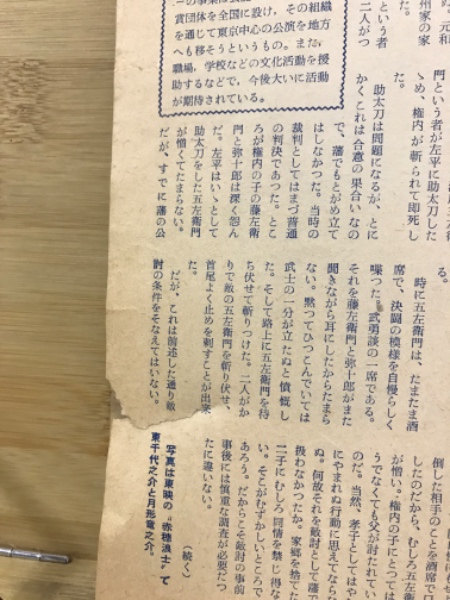 元和
州家の家
という者
二人がつ
賞団体を全国に設け、その組織
を通じて東京中心の公演を地方
へも移そうというもの。また、
職場、学校などの文化活動を援
助するなどで、今後大いに活動
が期待されている。
門という者が左平に助太刀した
ゝめ、権内が斬られて即死し
た。
助太刀は問題になるが、とに
かくこれは合意の果合いなの
で、藩でもとがめ立て
はしなかった。当時の
裁判としてはまづ普通
の判決であった。とこ
ろが権内の子の藤左衛
門と弥十郎は深く怨ん
だ。左平はいゝとして
助太刀をした五左衛門
が憎くてたまらない。
だが、すでに藩の公
る。
時に五左衛門は、たまたま酒
席で、決闘の模様を自慢らしく
喋つた。武勇談の一席である。
それを藤左衛門と弥十郎がまた
聞きながら耳にしたからたまら
ない。黙つてひつこんでいては
武士の一分が立たぬと憤慨し
た。そして路上に五左衛門を待
ち伏せて斬りつけた。二人がか
りで敵の五左衛門を斬り伏せ、
首尾よく止めを刺すことが出来
た。
だが、これは前述した通り敵
討の条件をそなえてはいない。
倒した相手のことを酒席で
したのだから、むしろ五左
が憎い。権内の子にとつては
うでなくても父が討たれてい
のだ。当然、孝子としてはや
にやまれぬ行動に思えてなら
ぬ。何故それを敵討として藩で
扱わなかつたか。家郷を捨てた
二子にむしろ同情を禁じ得な
い。そこがむずかしいところで
あろう。だからこそ敵討の事前
事後には慎重な調査が必要だつ
たに違いない。
(続く)
写真は東映の“赤穂浪士”で
東千代之介と月形竜之介。